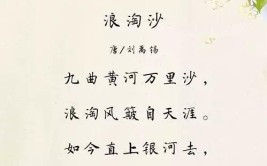 浪淘沙
唐/刘禹锡
九曲黄河万里沙，
浪淘风簸自天涯。
如今直上银河去，